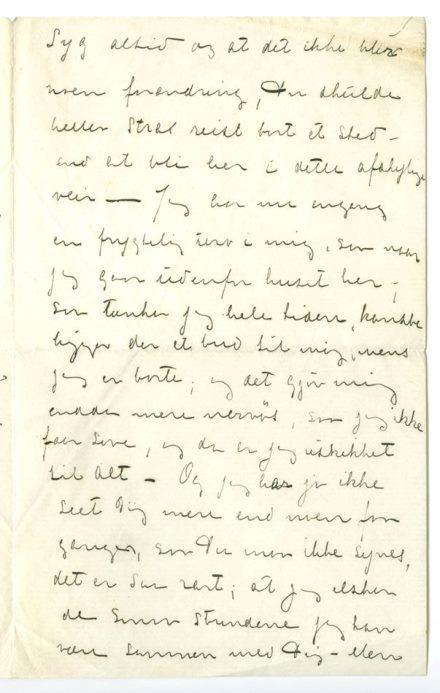 Syg altid og at det ikke blir
noen forandring, Du skulde
heller strax reist bort et sted –
end at bli her i dette afskylige
veir — Jeg har nu engang
en frygtelig uro i mig, som naar
jeg gaar udenfor huset her –,
saa tænker jeg hele tiden, kanske
ligger der et bud til mig, mens
jeg er borte, og det gjør mig
endda mere nervøs, saa jeg ikke
faar sove, og da er jeg uskikket
til alt – Og jeg har jo ikke
seet Dig mere end noen faa
ganger, saa Du maa ikke synes,
det er saa rart, at jeg elsker
de Smaa Stundene jeg kan
være sammen med Dig – Men